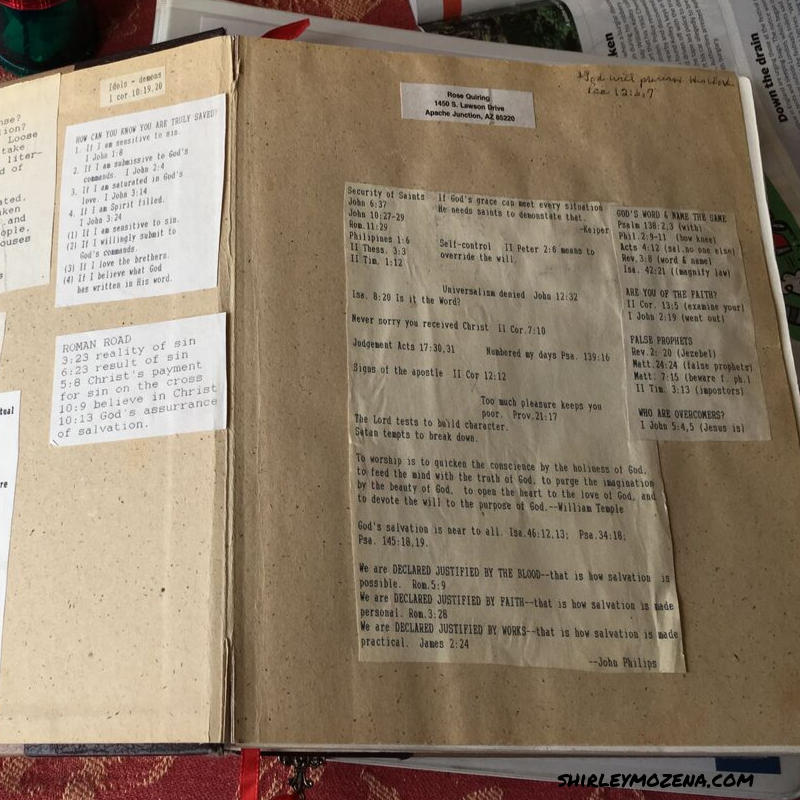 Idols - demons
1 cor.10:19,20
nse?
tion?
Loose
take
liter-
d of
ated.
ken
and
ople.
ouses
HOW CAN YOU KNOW YOU ARE TRULY SAVED?
1. If I am sensitive to sin.
I John 1:8
2. If I am submissive to God's
commands. I John 2:4
3. If I am saturated in God's
love. I John 3:14
4. If I am Spirit filled.
I John 3:24
(1) If I am sensitive to sin.
(2) If I willingly submit to
God's commands.
(3) If I love the brethers.
(4) If I believe what God
has written in His word.
ROMAN ROAD
3:23 reality of sin
6:23 result of sin
5:8 Christ's payment
for sin on the cross
10:9 believe in Christ
10:13 God's assurrance
of salvation.
tual
re
God will preserve His Word
Rose Quiring
1450 S. Lawson Drive
Apache Junction, AZ 85220
Security of Saints
John 6:37
John 10:27-29
Rom.11:29
Philipines 1:6
II Thess. 3:3
II Tim. 1:12
If God's grace can meet every situation
He needs saints to demonstate that.
-Keiper
Self-control II Peter 2:6 means to
override the will.
Universalism denied John 12:32
Isa. 8:20 Is it the Word?
Never sorry you received Christ II Cor.7:10
Judgement Acts 17:30,31 Numbered my days Psa. 139:16
Signs of the apostle II Cor 12:12
Too much pleasure keeps you
poor. Prov.21:17
The Lord tests to build character.
Satan tempts to break down.
To worship is to quicken the conscience by the holiness of God,
to feed the mind with the truth of God, to purge the imagination
by the beauty of God, to open the heart to the love of God, and
to devote the will to the purpose of God.--William Temple
God's salvation is near to all. Isa.46:12,13; Psa.34:18;
Psa. 145:18,19.
We are DECLARED JUSTIFIED BY THE BLOOD--that is how salvation is
possible. Rom.5:9
We are DECLARED JUSTIFIED BY FAITH--that is how salvation is made
personal. Rom.3:28
We are DECLARED JUSTIFIED BY WORKS--that is how salvation is made
practical. James 2:24
--John Philips
GOD'S WORD & NAME THE SAME
Psalm 138:2,3 (with)
Phil.2:9-11 (how knee)
Acts 4:12 (sal.no one else)
Rev.3:8 (word & name)
Isa. 42:21 ((magnify law)
ARE YOU OF THE FAITH?
II Cor. 13:5 (examine your)
I John 2:19 (went out)
FALSE PROPHETS
Rev.2: 20 (Jezebel)
Matt.24:24 (false prophets)
Matt. 7:15 (beware f. ph.)
II Tim. 3:13 (impostors)
WHO ARE OVERCOMERS?
I John 5:4,5 (Jesus is)
ken
Down the drain
SHIRLEYMOZENA.COM